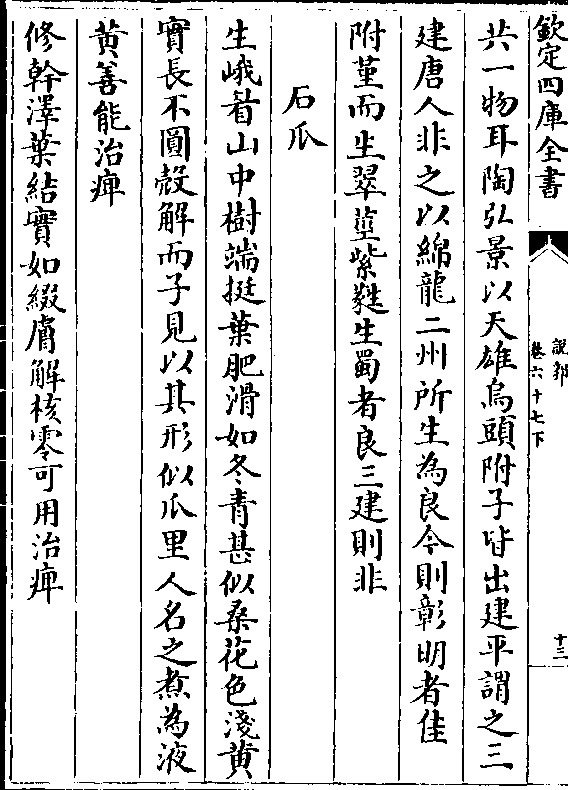 欽定四庫全書
說郛
卷六十七下
十三
共一物耳陶弘景以天雄烏頭附子皆出建平謂之三
建唐人非之以綿龍二州所生為良今則彰明者佳
附菫而生翠莖紫蘳生蜀者良三建則非
石瓜
生峨眉山中樹端挺葉肥滑如冬青甚似桑花色淺黄
實長不圓殼解而子見以其形似瓜里人名之煮為液
黄善能治痺
修幹澤葉結實如綴膚解核零可用治痺